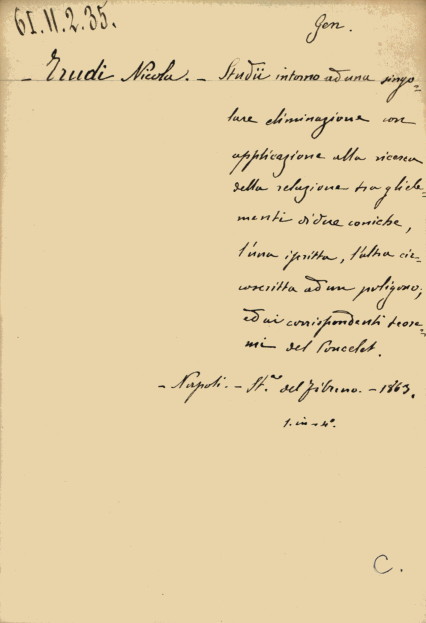 61.11.2.35.
Gen.
— Trudi Nicola. — Studii intorno ad una singo-
lare eliminazione con
applicazione alla ricerca
della relazione tra gli ele-
menti di due coniche,
l'una iscritta, l'altra cir-
coscritta ad un poligono;
ed ai corrispondenti teore-
mi del Poncelet.
— Napoli. — St.ª del Fibreno. — 1863.
1. in-4º.
C.